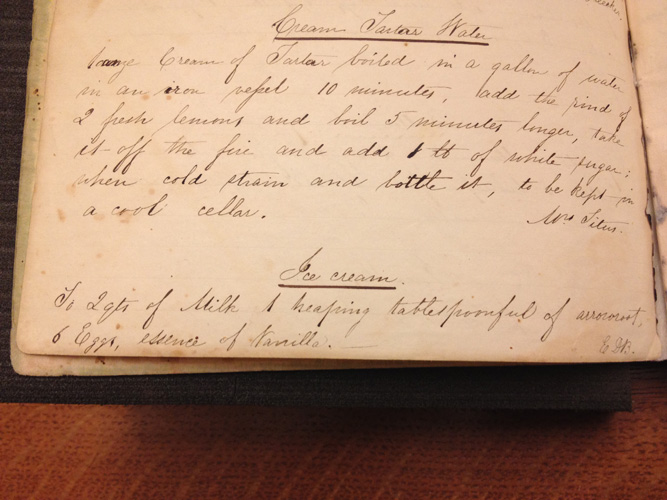 Cream Tartar Water
1 ounze Cream of Tartar boiled in a gallon of water
in an iron vessel 10 minutes, add the rind of
2 fresh lemons and boil 5 minutes longer, take
it off the fire and add 1 lb of white sugar;
when cold strain and bottle it, to be kept in
a cool cellar.
Mrs Titus.
Ice cream.
To 2 qts of Milk 1 heaping tablespoonful of arrowroot,
6 Eggs, essence of Vanilla.